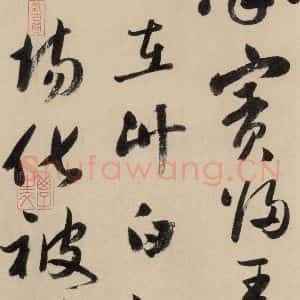 賓歸王
在竹白
場化被
Shufawang.CN